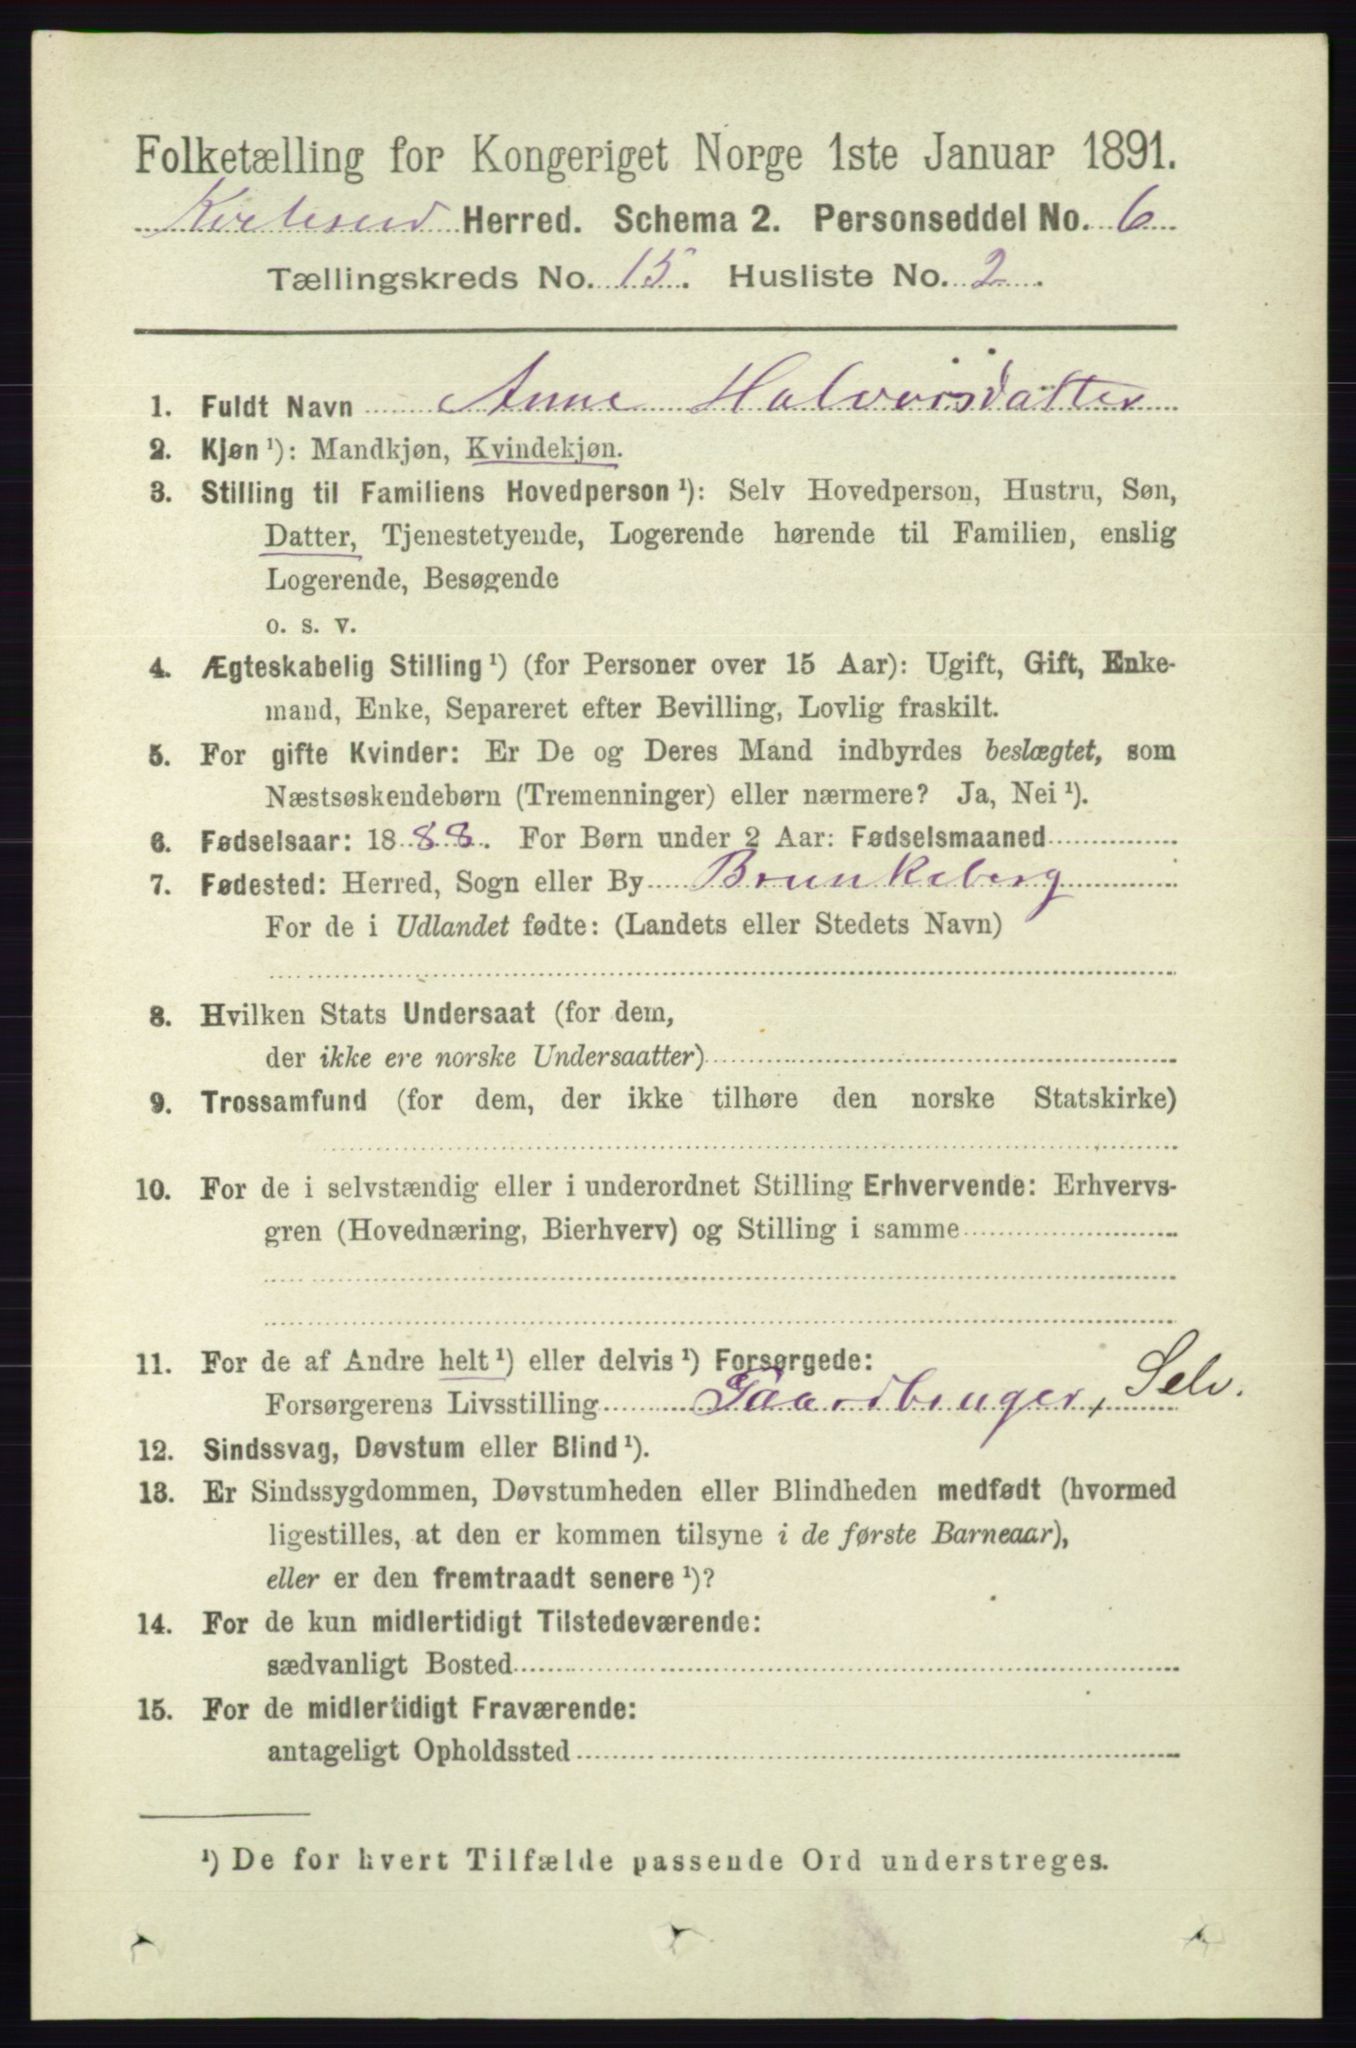 Folketælling for Kongeriget Norge 1ste Januar 1891.
Herred. Schema 2. Personseddel No. 6
Tællingskreds No. 15. Husliste No. 2.
1. Fuldt Navn Anne Halvorsdatter
2. Kjøn ¹): Mandkjøn, Kvindekjøn.
3. Stilling til Familiens Hovedperson ¹): Selv Hovedperson, Hustru, Søn,
Datter, Tjenestetyende, Logerende hørende til Familien, enslig
Logerende, Besøgende
o. s. v.
4. Ægteskabelig Stilling ¹) (for Personer over 15 Aar): Ugift, Gift, Enke-
mand, Enke, Separeret efter Bevilling, Lovlig fraskilt.
5. For gifte Kvinder: Er De og Deres Mand indbyrdes beslægtet, som
Næstsøskendebørn (Tremenninger) eller nærmere? Ja, Nei ¹).
6. Fødselsaar: 1888. For Børn under 2 Aar: Fødselsmaaned
7. Fødested: Herred, Sogn eller By Brunkeberg
For de i Udlandet fødte: (Landets eller Stedets Navn)
8. Hvilken Stats Undersaat (for dem,
der ikke ere norske Undersaatter)
9. Trossamfund (for dem, der ikke tilhøre den norske Statskirke)
10. For de i selvstændig eller i underordnet Stilling Erhvervende: Erhvervs-
gren (Hovednæring, Bierhverv) og Stilling i samme
11. For de af Andre helt ¹) eller delvis ¹) Forsørgede:
Forsørgerens Livsstilling Gaardbruger, Selv.
12. Sindssvag, Døvstum eller Blind ¹).
13. Er Sindssygdommen, Døvstumheden eller Blindheden medfødt (hvormed
ligestilles, at den er kommen tilsyne i de første Barneaar),
eller er den fremtraadt senere ¹)?
14. For de kun midlertidigt Tilstedeværende:
sædvanligt Bosted
15. For de midlertidigt Fraværende:
antageligt Opholdssted
¹) De for hvert Tilfælde passende Ord understreges.